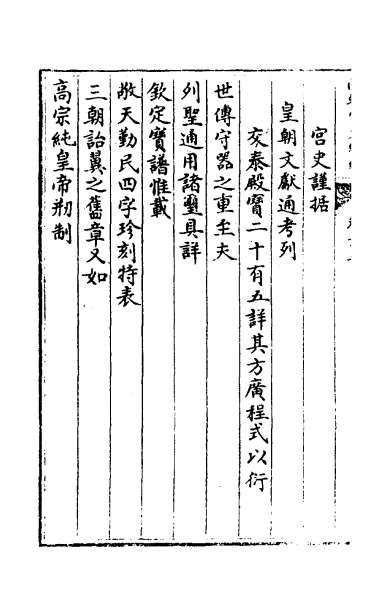 宮史謹据
皇朝文獻通考列
交泰殿寶二十有五詳其方廣程式以衍
世傳守器之重至夫
列聖通用諸璽具詳
欽定寶譜惟載
敬天勤民四字珍刻特表
三朝詒翼之舊章又如
高宗純皇帝刱制